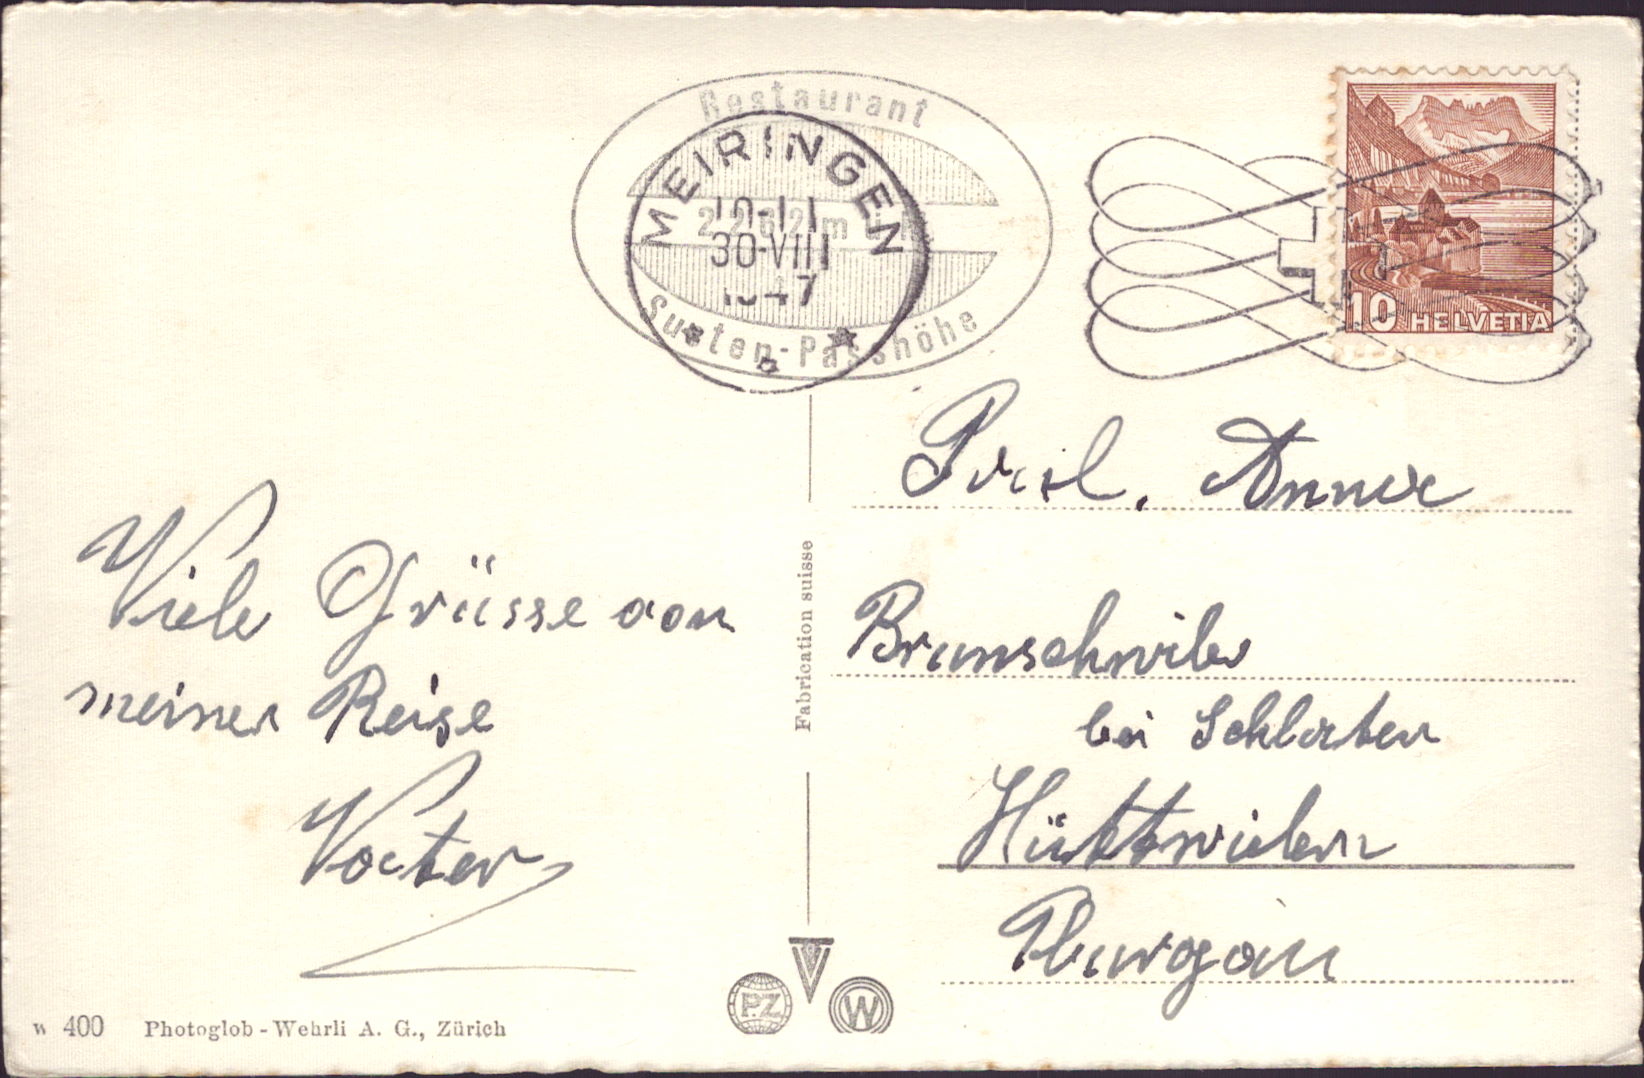 Restaurant
2262 m ü. M.
Susten-Passhöhe
MEIRINGEN
30·VIII
1947
10 HELVETIA
Viele Grüsse von
meiner Reise
Vater
Frl. Anna
Brunschwiler
bei Schlatten
Hüttwilen
Thurgau
Fabrication suisse
PZ
W
W 400 Photoglob-Wehrli A. G., Zürich